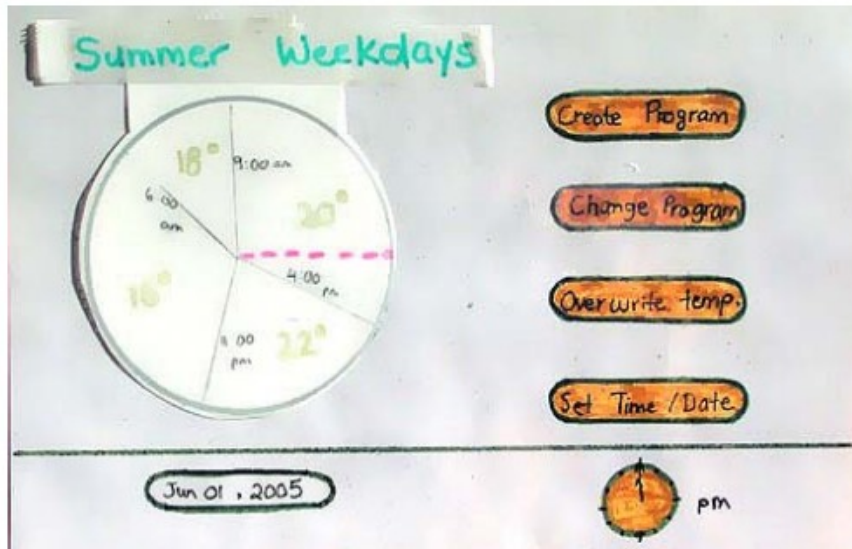 Summer Weekdays
18°
9:00 am
6:00
am
20°
4:00
pm
16°
:00
pm
22°
Create Program
Change Program
Overwrite temp.
Set Time/Date
Jun 01, 2005
pm